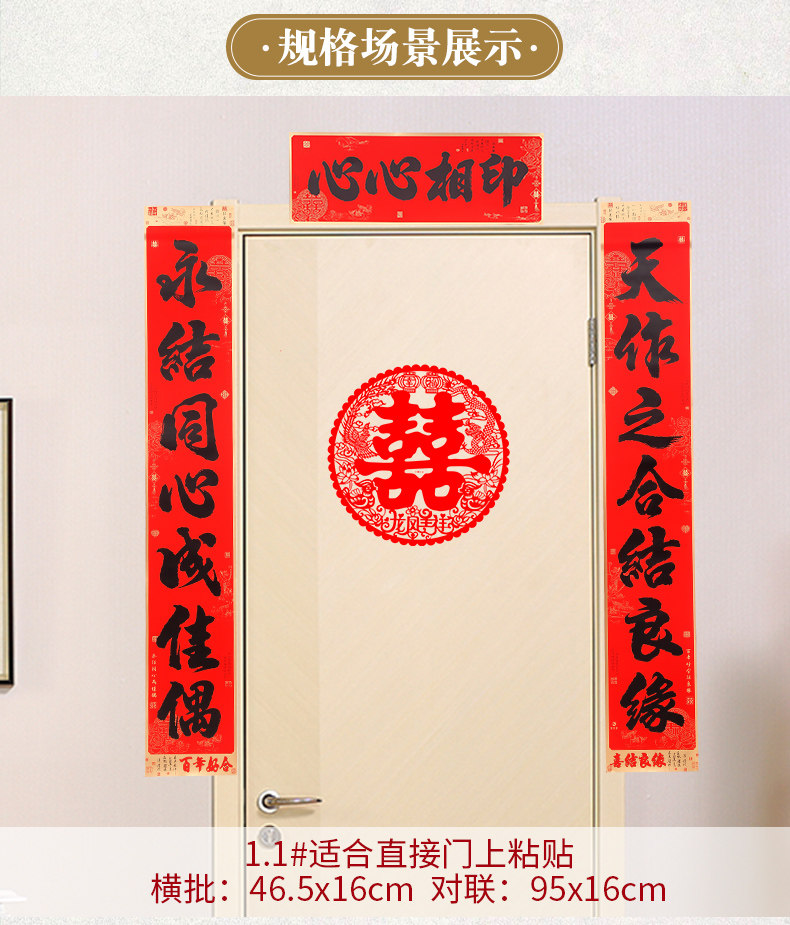 ·规格场景展示·
心心相印
天作之合结良缘
永結同心成佳偶
囍
百年好合
喜结良缘
1.1#适合直接门上粘贴
横批：46.5x16cm 对联：95x16cm